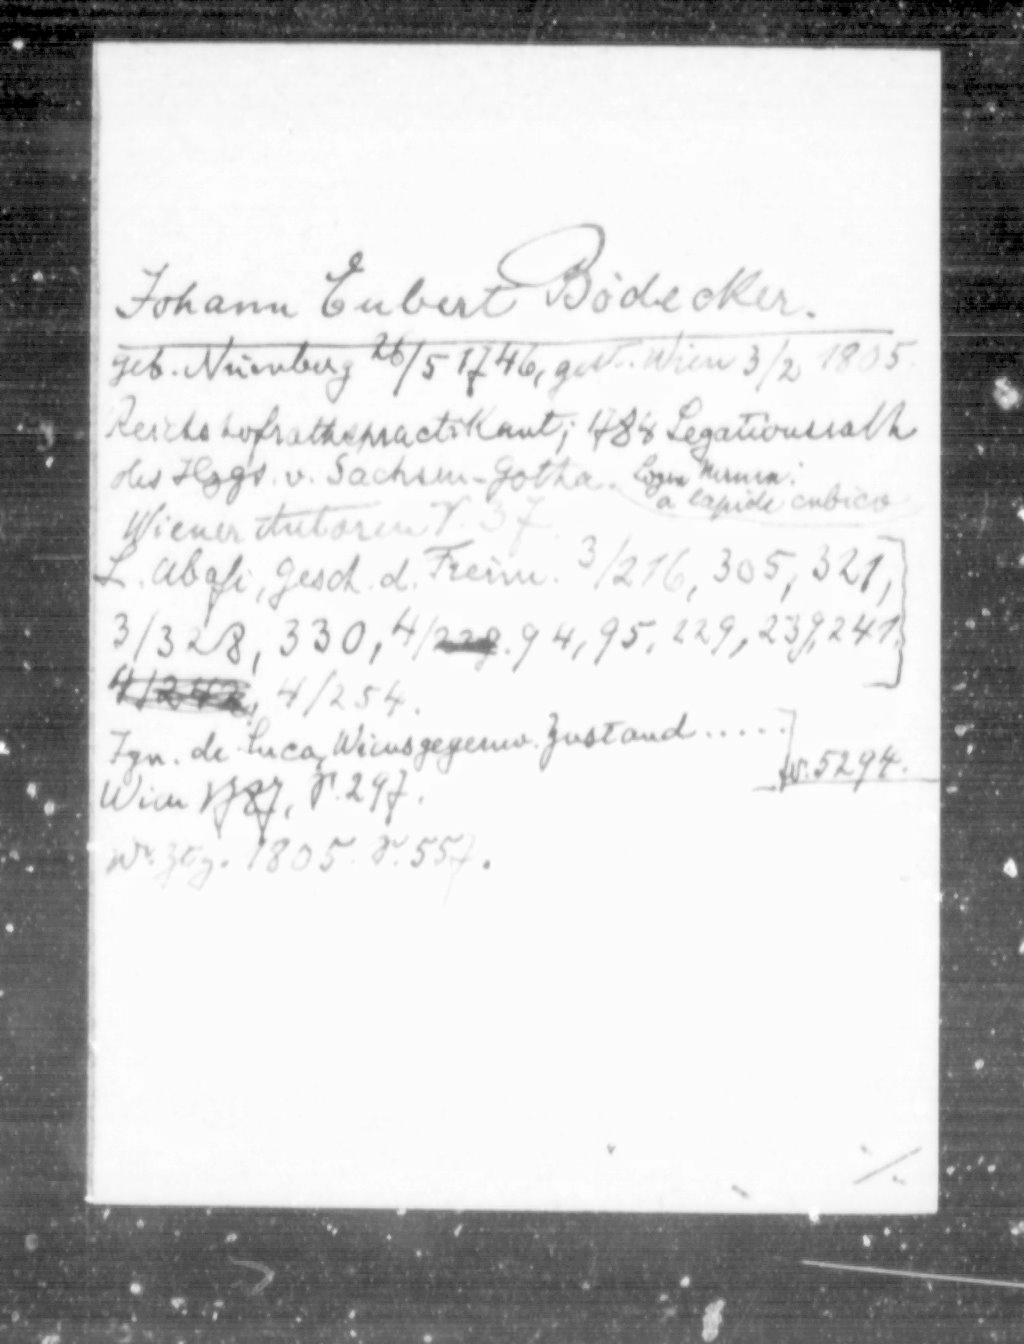 Johann Eubert Bödecker.
geb. Nürnberg 26/5 1746, gest. Wien 3/2 1805.
Reichshofrathspractikant; 1784 Legationsrath
des Hzgs. v. Sachsen-Gotha. Logen
a lapide cubico
Wiener Autoren S. 37.
L. Abafi, Gesch. d. Freim. 3/216, 305, 321,
3/328, 330, 4/ 94, 95, 229, 239, 241,
4/242, 4/254.
Ign. de Luca, Wiens gegenw. Zustand .....
Wien 1787, S. 297.
W. 5294.
Wr. Ztg. 1805. S. 557.